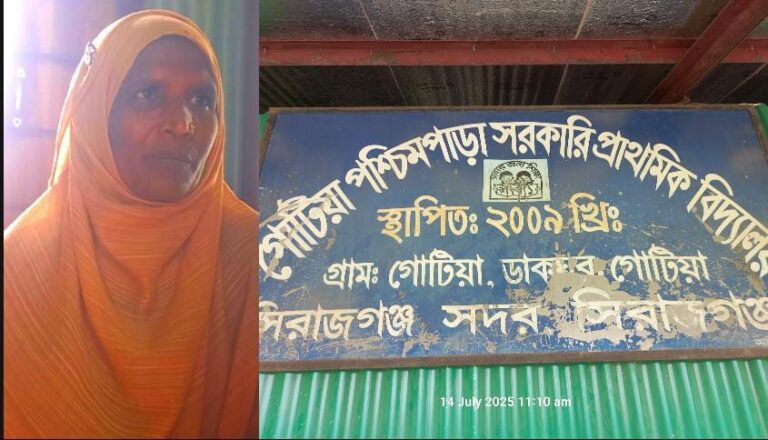 গোটিয়া পশ্চিমপাড়া সরকারি প্রাথমিক বিদ্যালয়
স্থাপিতঃ ২০০৯ খ্রিঃ
গ্রামঃ গোটিয়া, ডাকঘর, গোটিয়া
সিরাজগঞ্জ সদর সিরাজগঞ্জ
14 July 2025 11:10 am